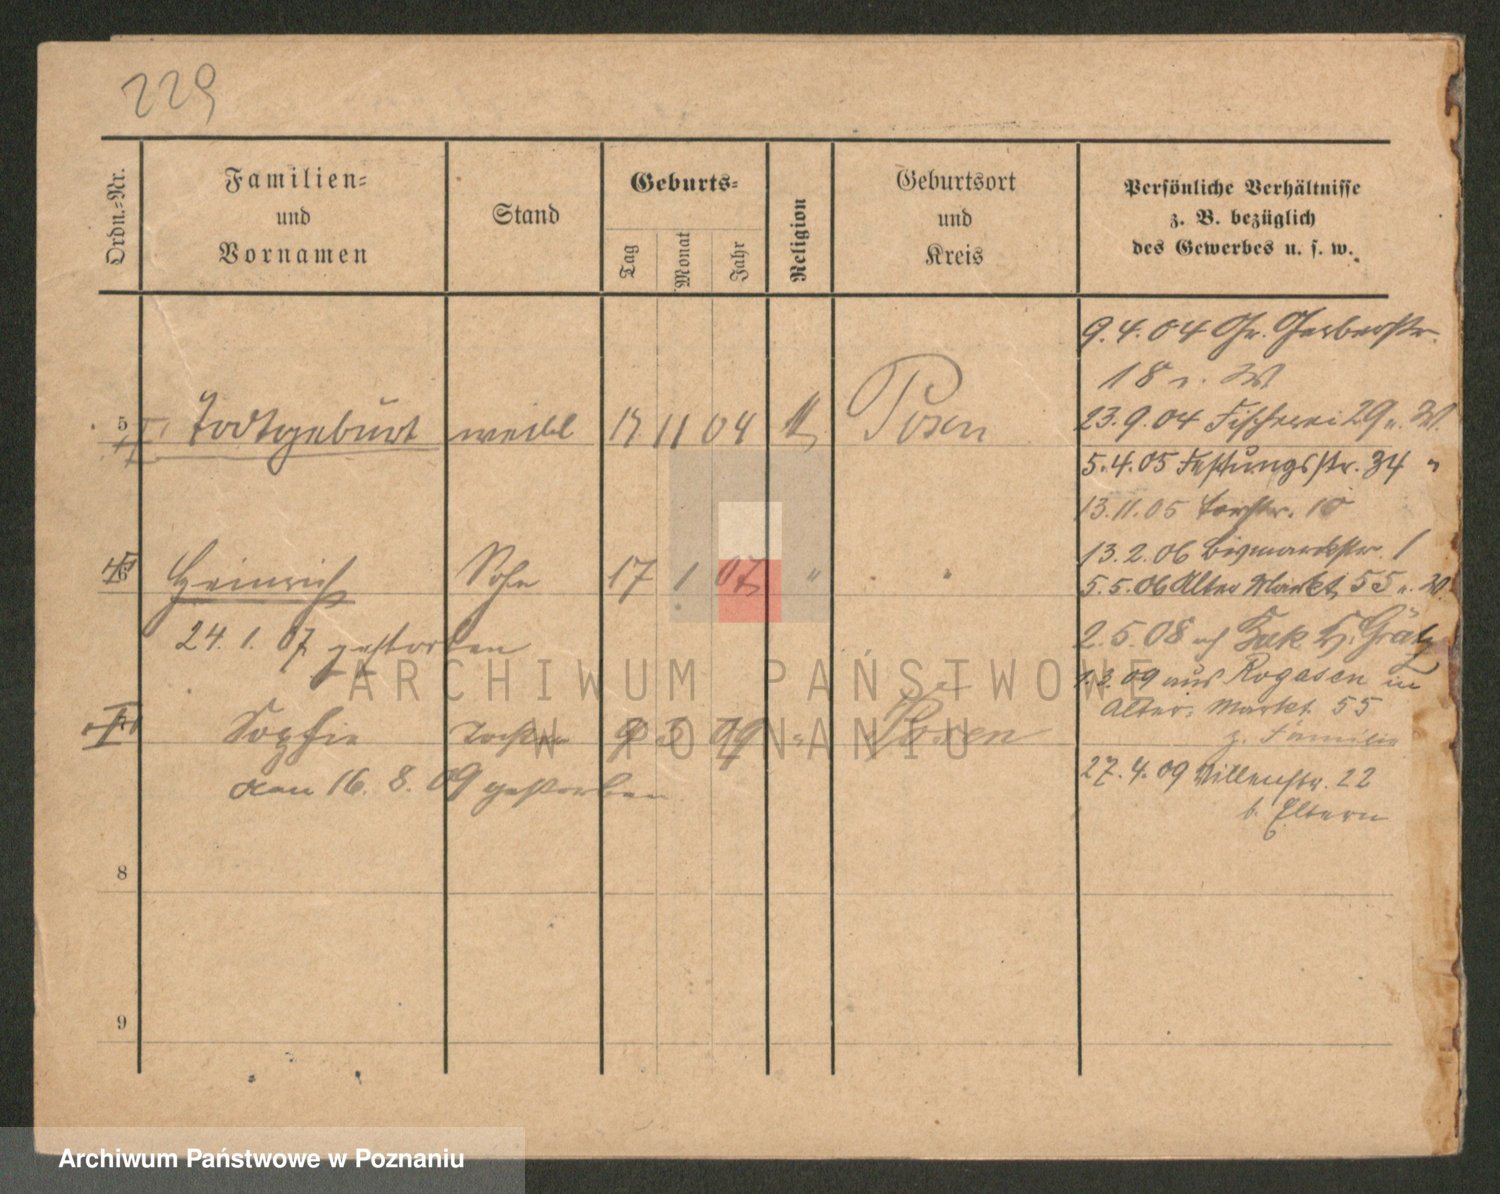 229
Ordn.=Nr.
Familien=
und
Vornamen
Stand
Geburts=
Tag
Monat
Jahr
Religion
Geburtsort
und
Kreis
Persönliche Verhältnisse
z. B. bezüglich
des Gewerbes u. s. w.
9.4.04 Gr. Gerberstr.
18 W
5 Todtgeburt weibl 11 04 Posen
23.9.04 Fischerei 29 W.
5.4.05 Festungsstr. 34 "
13.11.05 Torstr. 10
13.2.06 Bismarckstr. 1
6 Heinrich Sohn 17 1 07 " " "
5.5.06 Alter Markt 55 W.
24.1.07 gestorben
2.5.08
1.3.09 aus Rogasen in
Alter Markt 55
Sophie Tochter 9 3 09 " Posen
z. Familie
27.4.09 Villenstr. 22
b. Eltern
den 16.8.09 gestorben
8
9
ARCHIWUM PAŃSTWOWE
W POZNANIU
Archiwum Państwowe w Poznaniu